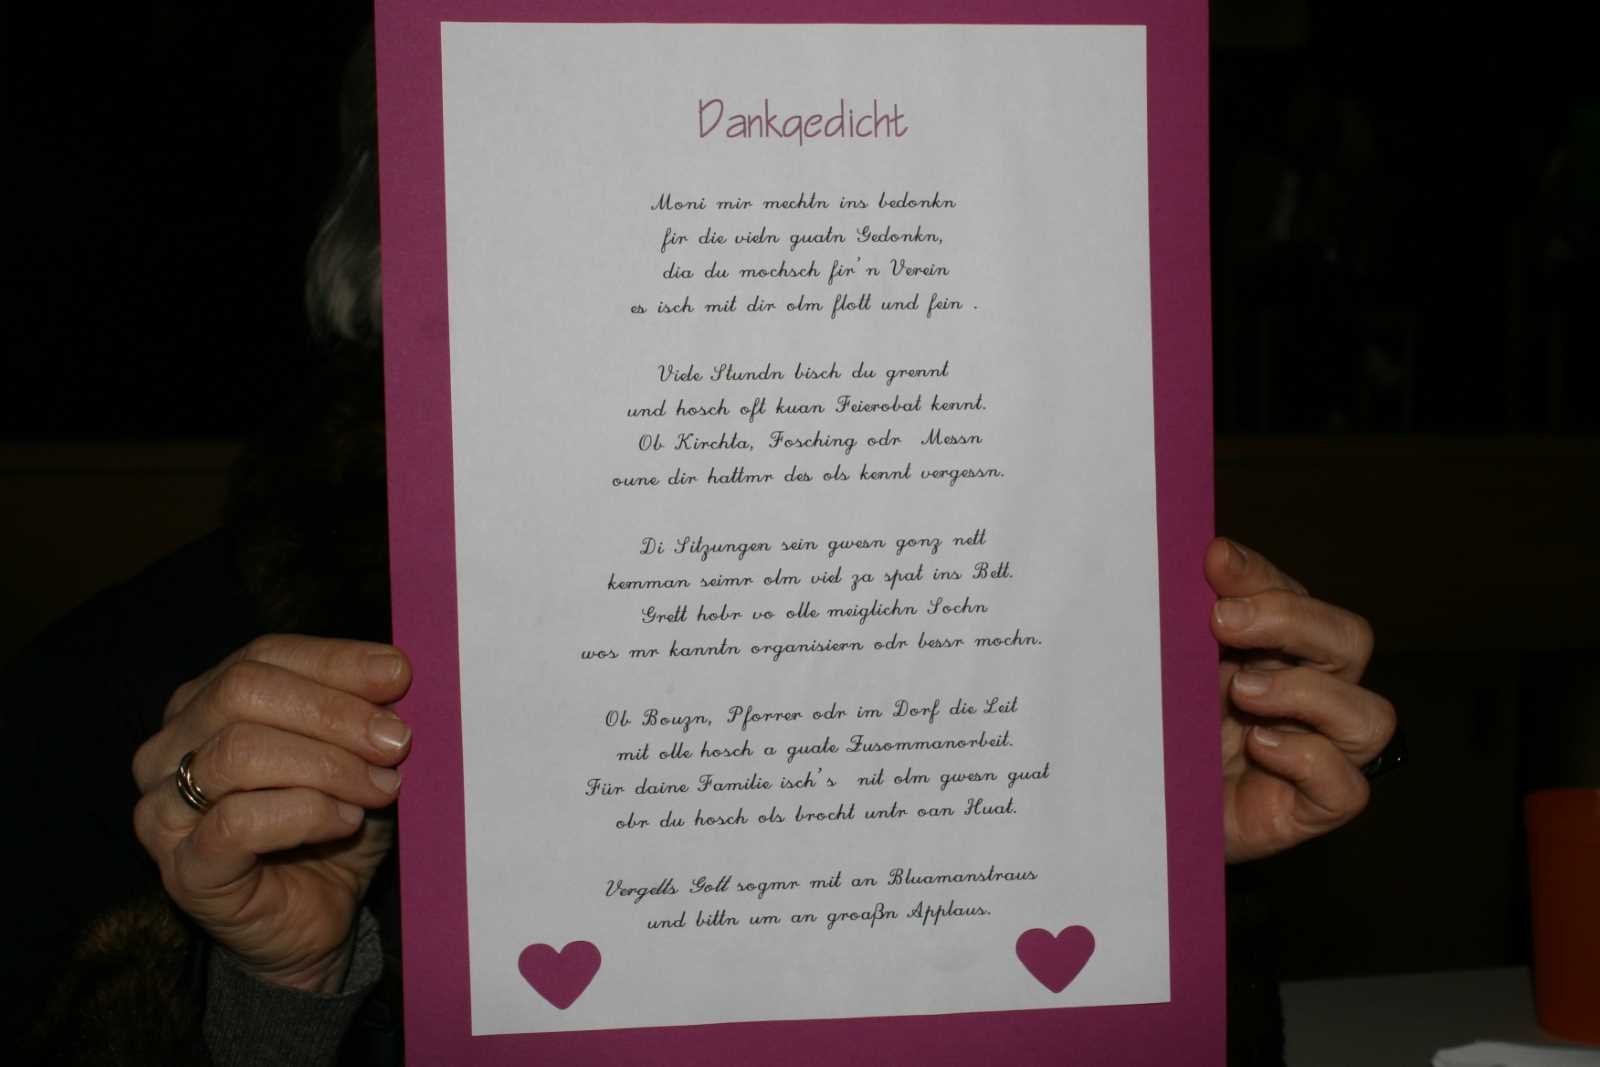 Dankgedicht
Moni mir mechtn ins bedonkn
fir die vieln guatn Gedonkn,
dia du mochsch fir'n Verein
es isch mit dir olm flott und fein .
Viele Stundn bisch du grennt
und hosch oft kuan Feierobat kennt.
Ob Kirchta, Fosching odr Messn
oune dir hattmr des ols kennt vergessn.
Di Sitzungen sein gwesn gonz nett
kemman seimr olm viel za spat ins Bett.
Grett hobr vo olle meiglichn Sochn
wos mr kanntn organisiern odr bessr mochn.
Ob Bouzn, Pforrer odr im Dorf die Leit
mit olle hosch a guate Zusommanorbeit.
Für daine Familie isch's nit olm gwesn guat
obr du hosch ols brocht untr oan Huat.
Vergelts Gott sogmr mit an Bluamanstraus
und bittn um an groaßn Applaus.